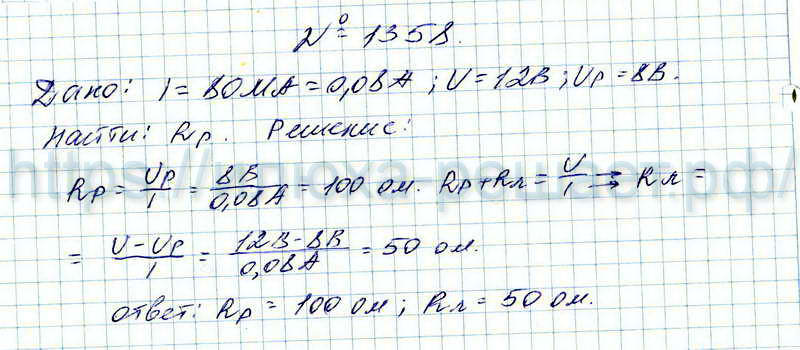 № 1358.
Дано: I = 80мА = 0,08А; U = 12В; Uр = 8В.
Найти: Rр. Решение:
Rр = Uр/I = 8В/0,08А = 100 ом. Rр + Rл = U/I → Rл =
= U - Uр/I = 12В - 8В/0,08А = 50 ом.
ответ: Rр = 100 ом; Rл = 50 ом.